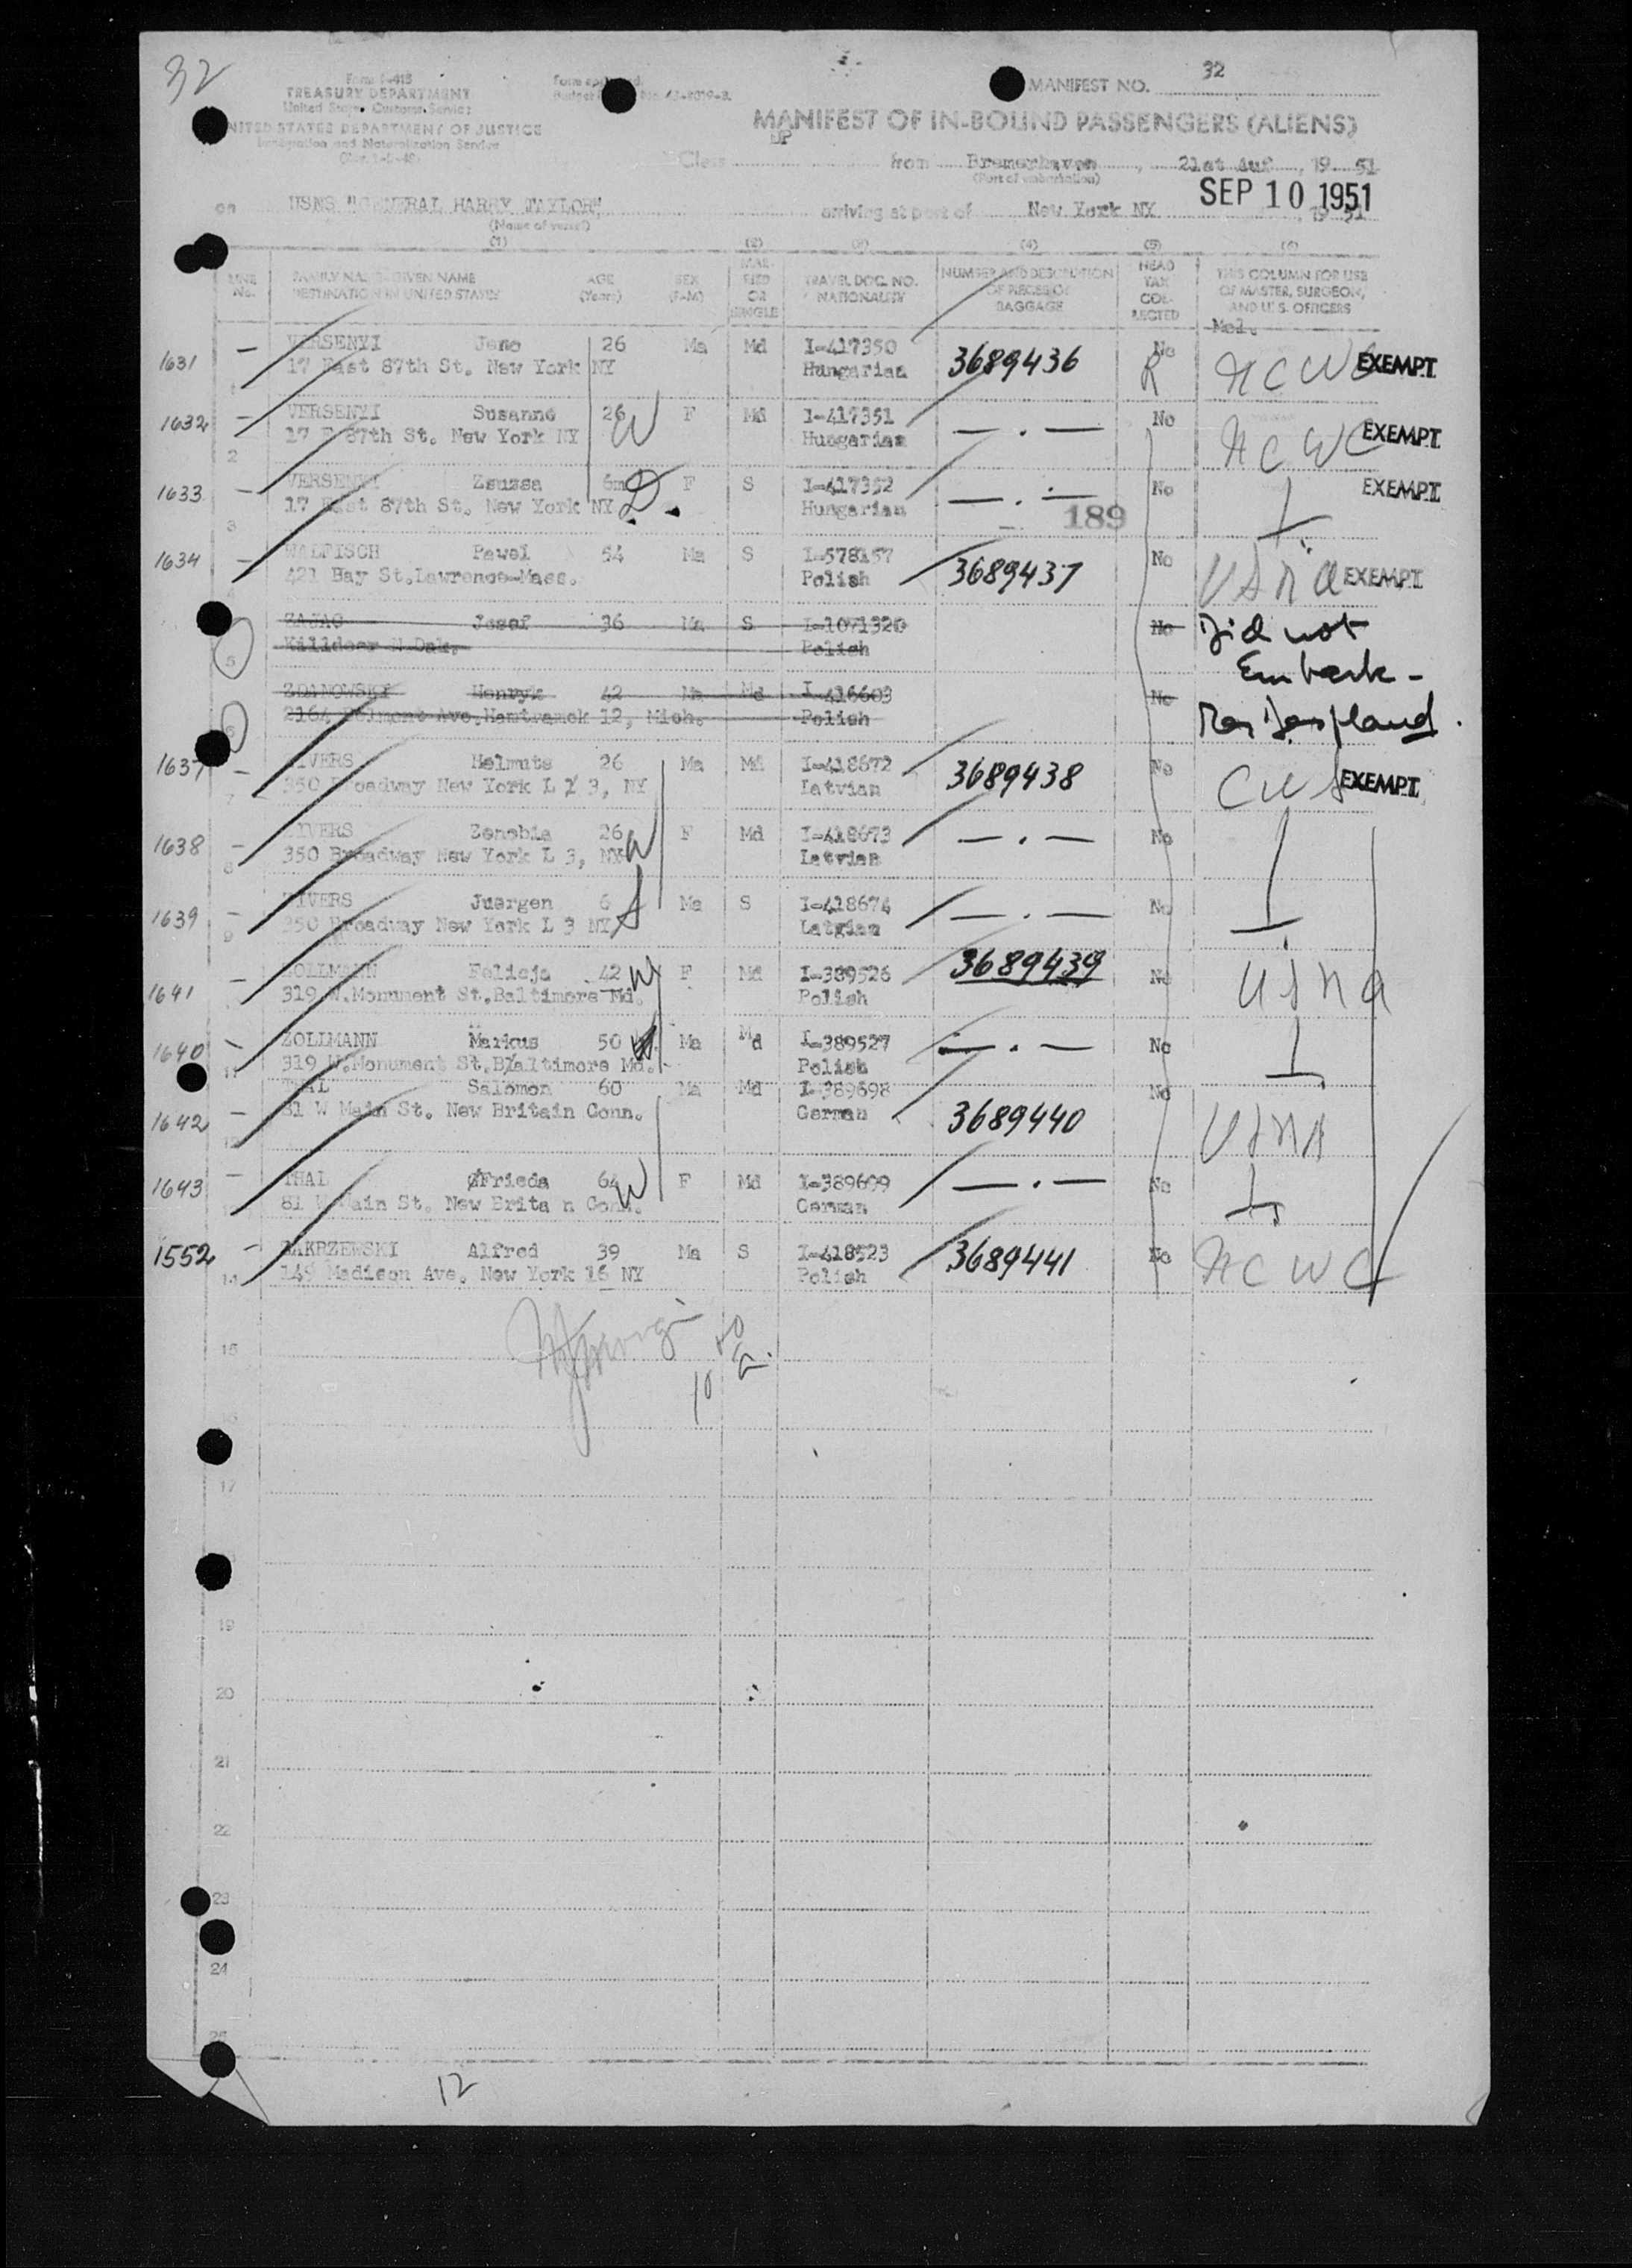 32
Form I-415
TREASURY DEPARTMENT
United States Customs Service
UNITED STATES DEPARTMENT OF JUSTICE
Immigration and Naturalization Service
Form approved.
MANIFEST NO. 32
MANIFEST OF IN-BOUND PASSENGERS (ALIENS)
Class DP from Bremerhaven, 21st Aug, 19 51
(Port of embarkation)
SEP 10 1951
on USNS "GENERAL HARRY TAYLOR" arriving at port of New York NY, 19 51
(Name of vessel)
(1) (2) (3) (4) (5) (6)
LINE No. FAMILY NAME—GIVEN NAME DESTINATION IN UNITED STATES AGE (Years) SEX (F-M) MARRIED OR SINGLE TRAVEL DOC. NO. NATIONALITY NUMBER AND DESCRIPTION OF PIECES OF BAGGAGE HEAD TAX COLLECTED THIS COLUMN FOR USE OF MASTER, SURGEON, AND U. S. OFFICERS
1631 — VERSENYI Jeno 26 Ma Md I-417350 3689436 No R NCWC EXEMPT
17 East 87th St. New York NY Hungarian
1632 — VERSENYI Susanne 26 W F Md I-417351 — . — No NCWC EXEMPT
2 17 E 87th St. New York NY Hungarian
1633 — VERSENYI Zsuzsa 6m D. F S I-417352 — . — No EXEMPT
3 17 East 87th St. New York NY Hungarian 189
1634 — WALFISCH Pawel 54 Ma S I-578157 3689437 No USNA EXEMPT
421 Bay St.Lawrence-Mass. Polish
ZAJAC Josef 36 Ma S I-1071320 No Did not
5 Killdeer N Dak. Polish Embark -
ZDANOWSKI Henryk 42 Ma Md I-416603 No
6 2164 Belmont Ave.Hamtramck 12, Mich. Polish
1637 — Helmuts 26 Ma Md I-418672 3689438 No CWS EXEMPT
7 350 Broadway New York L 3, NY Latvian
1638 — Zenobia 26 W F Md I-418673 — . — No
8 350 Broadway New York L 3, NY Latvian
1639 — Juergen 6 S Ma S I-418674 — . — No
9 350 Broadway New York L 3 NY Latvian
1641 — ZOLLMANN Felicja 42 W F Md I-389526 3689439 No USNA
319 W.Monument St.Baltimore Md. Polish
1640 — ZOLLMANN Markus 50 Ma Md I-389527 — . — No
11 319 W.Monument St.Baltimore Md. Polish
1642 — THAL Salomon 60 Ma Md I-389698 3689440 No USNA
12 81 W Main St. New Britain Conn. German
1643 — THAL Frieda 64 W F Md I-389609 — . — No
81 W Main St. New Brita n Conn. German
1552 — ZAKRZEWSKI Alfred 39 Ma S I-418523 3689441 No NCWC
14 145 Madison Ave. New York 16 NY Polish
15
17
19
20
21
22
23
24
25
12